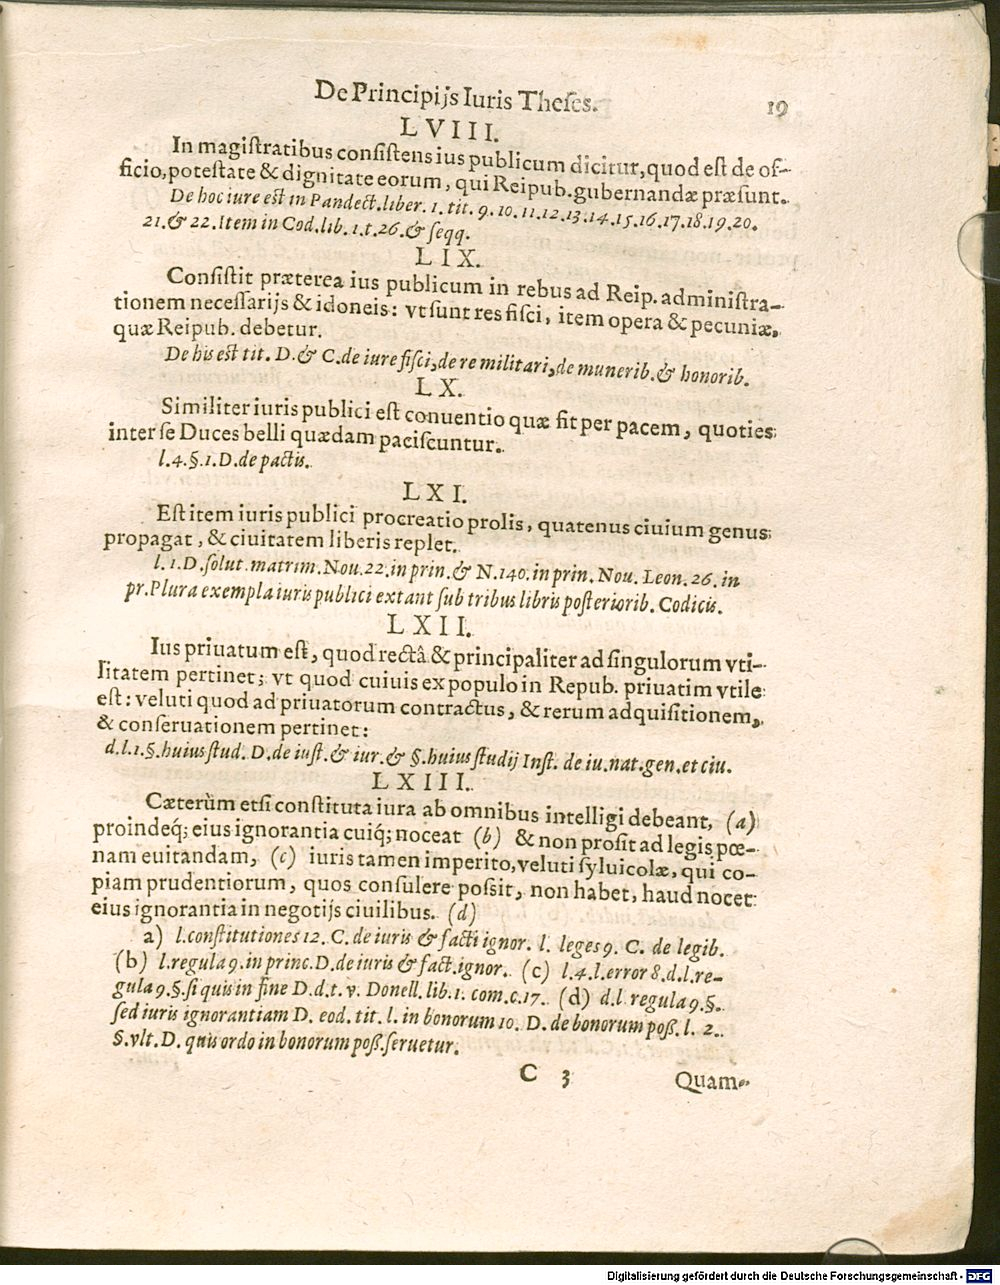 De Principijs Iuris Theses. 19
LVIII.
In magiſtratibus conſiſtens ius publicum dicitur, quod eſt de of-
ficio, poteſtate & dignitate eorum, qui Reipub. gubernandæ præſunt.
De hoc iure eſt in Pandect. liber. 1. tit. 9. 10. 11. 12. 13. 14. 15. 16. 17. 18. 19. 20.
21. & 22. Item in Cod. lib. 1. t. 26. & ſeqq.
LIX.
Conſiſtit præterea ius publicum in rebus ad Reip. adminiſtra-
tionem neceſſarijs & idoneis: vt ſunt res fiſci, item opera & pecuniæ,
quæ Reipub. debetur.
De his eſt tit. D. & C. de iure fiſci, de re militari, de munerib. & honorib.
LX.
Similiter iuris publici eſt conuentio quæ fit per pacem, quoties
inter ſe Duces belli quædam paciſcuntur.
l. 4. §. 1. D. de pactis.
LXI.
Eſt item iuris publici procreatio prolis, quatenus ciuium genus
propagat, & ciuitatem liberis replet.
l. 1. D. ſolut. matrim. Nou. 22. in prin. & N. 140. in prin. Nou. Leon. 26. in
pr. Plura exempla iuris publici extant ſub tribus libris poſteriorib. Codicis.
LXII.
Ius priuatum eſt, quod rectâ & principaliter ad ſingulorum vti-
litatem pertinet; vt quod cuiuis ex populo in Repub. priuatim vtile
eſt: veluti quod ad priuatorum contractus, & rerum adquiſitionem,
& conſeruationem pertinet:
d. l. 1. §. huius ſtud. D. de iuſt. & iur. & §. huius ſtudij Inſt. de iu. nat. gen. et ciu.
LXIII.
Cæterùm etſi conſtituta iura ab omnibus intelligi debeant, (a)
proindeq́; eius ignorantia cuiq́; noceat (b) & non proſit ad legis pœ-
nam euitandam, (c) iuris tamen imperito, veluti ſyluicolæ, qui co-
piam prudentiorum, quos conſulere poſsit, non habet, haud nocet
eius ignorantia in negotijs ciuilibus. (d)
a) l. conſtitutiones 12. C. de iuris & facti ignor. l. leges 9. C. de legib.
(b) l. regula 9. in princ. D. de iuris & fact. ignor. (c) l. 4. l. error 8. d. l. re-
gula 9. §. ſi quis in fine D. d. t. v. Donell. lib. 1. com. c. 17. (d) d. l regula 9. §.
ſed iuris ignorantiam D. eod. tit. l. in bonorum 10. D. de bonorum poſß. l. 2.
§. vlt. D. quis ordo in bonorum poſß. ſeruetur.
C 3 Quam-
Digitalisierung gefördert durch die Deutsche Forschungsgemeinschaft - DFG